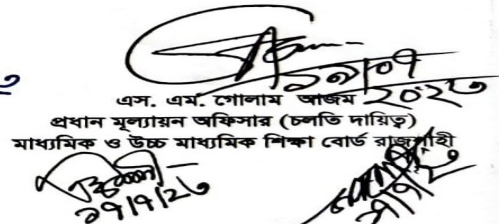 ২০২৩
এস. এম. গোলাম আজম
প্রধান মূল্যায়ন অফিসার (চলতি দায়িত্ব)
মাধ্যমিক ও উচ্চ মাধ্যমিক শিক্ষা বোর্ড রাজশাহী
১৭/৭/২৩